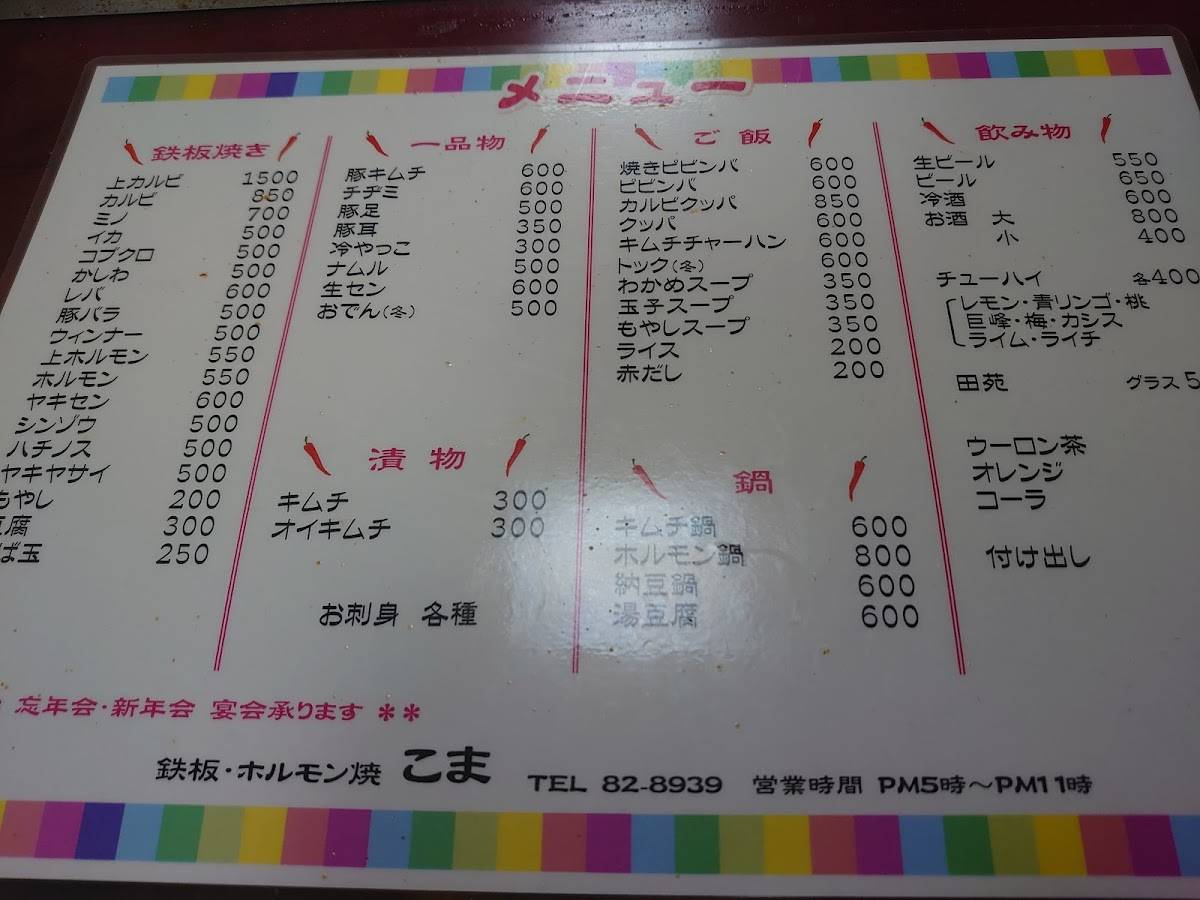 メニュー
鉄板焼き
上カルビ 1500
カルビ 850
ミノ 700
イカ 500
コブクロ 500
かしわ 500
レバ 600
豚バラ 500
ウィンナー 500
上ホルモン 550
ホルモン 550
ヤキセン 600
シンゾウ 500
ハチノス 500
ヤキヤサイ 500
もやし 200
豆腐 300
ば玉 250
一品物
豚キムチ 600
チヂミ 600
豚足 500
豚耳 350
冷やっこ 300
ナムル 500
生セン 600
おでん(冬) 500
漬物
キムチ 300
オイキムチ 300
お刺身 各種
ご飯
焼きビビンバ 600
ビビンバ 600
カルビクッパ 850
クッパ 600
キムチチャーハン 600
トック(冬) 600
わかめスープ 350
玉子スープ 350
もやしスープ 350
ライス 200
赤だし 200
鍋
キムチ鍋 600
ホルモン鍋 800
納豆鍋 600
湯豆腐 600
飲み物
生ビール 550
ビール 650
冷酒 600
お酒 大 800
小 400
チューハイ 各400
レモン・青リンゴ・桃
巨峰・梅・カシス
ライム・ライチ
田苑 グラス5
ウーロン茶
オレンジ
コーラ
付け出し
忘年会・新年会 宴会承ります **
鉄板・ホルモン焼 こま TEL 82-8939 営業時間 PM5時～PM11時